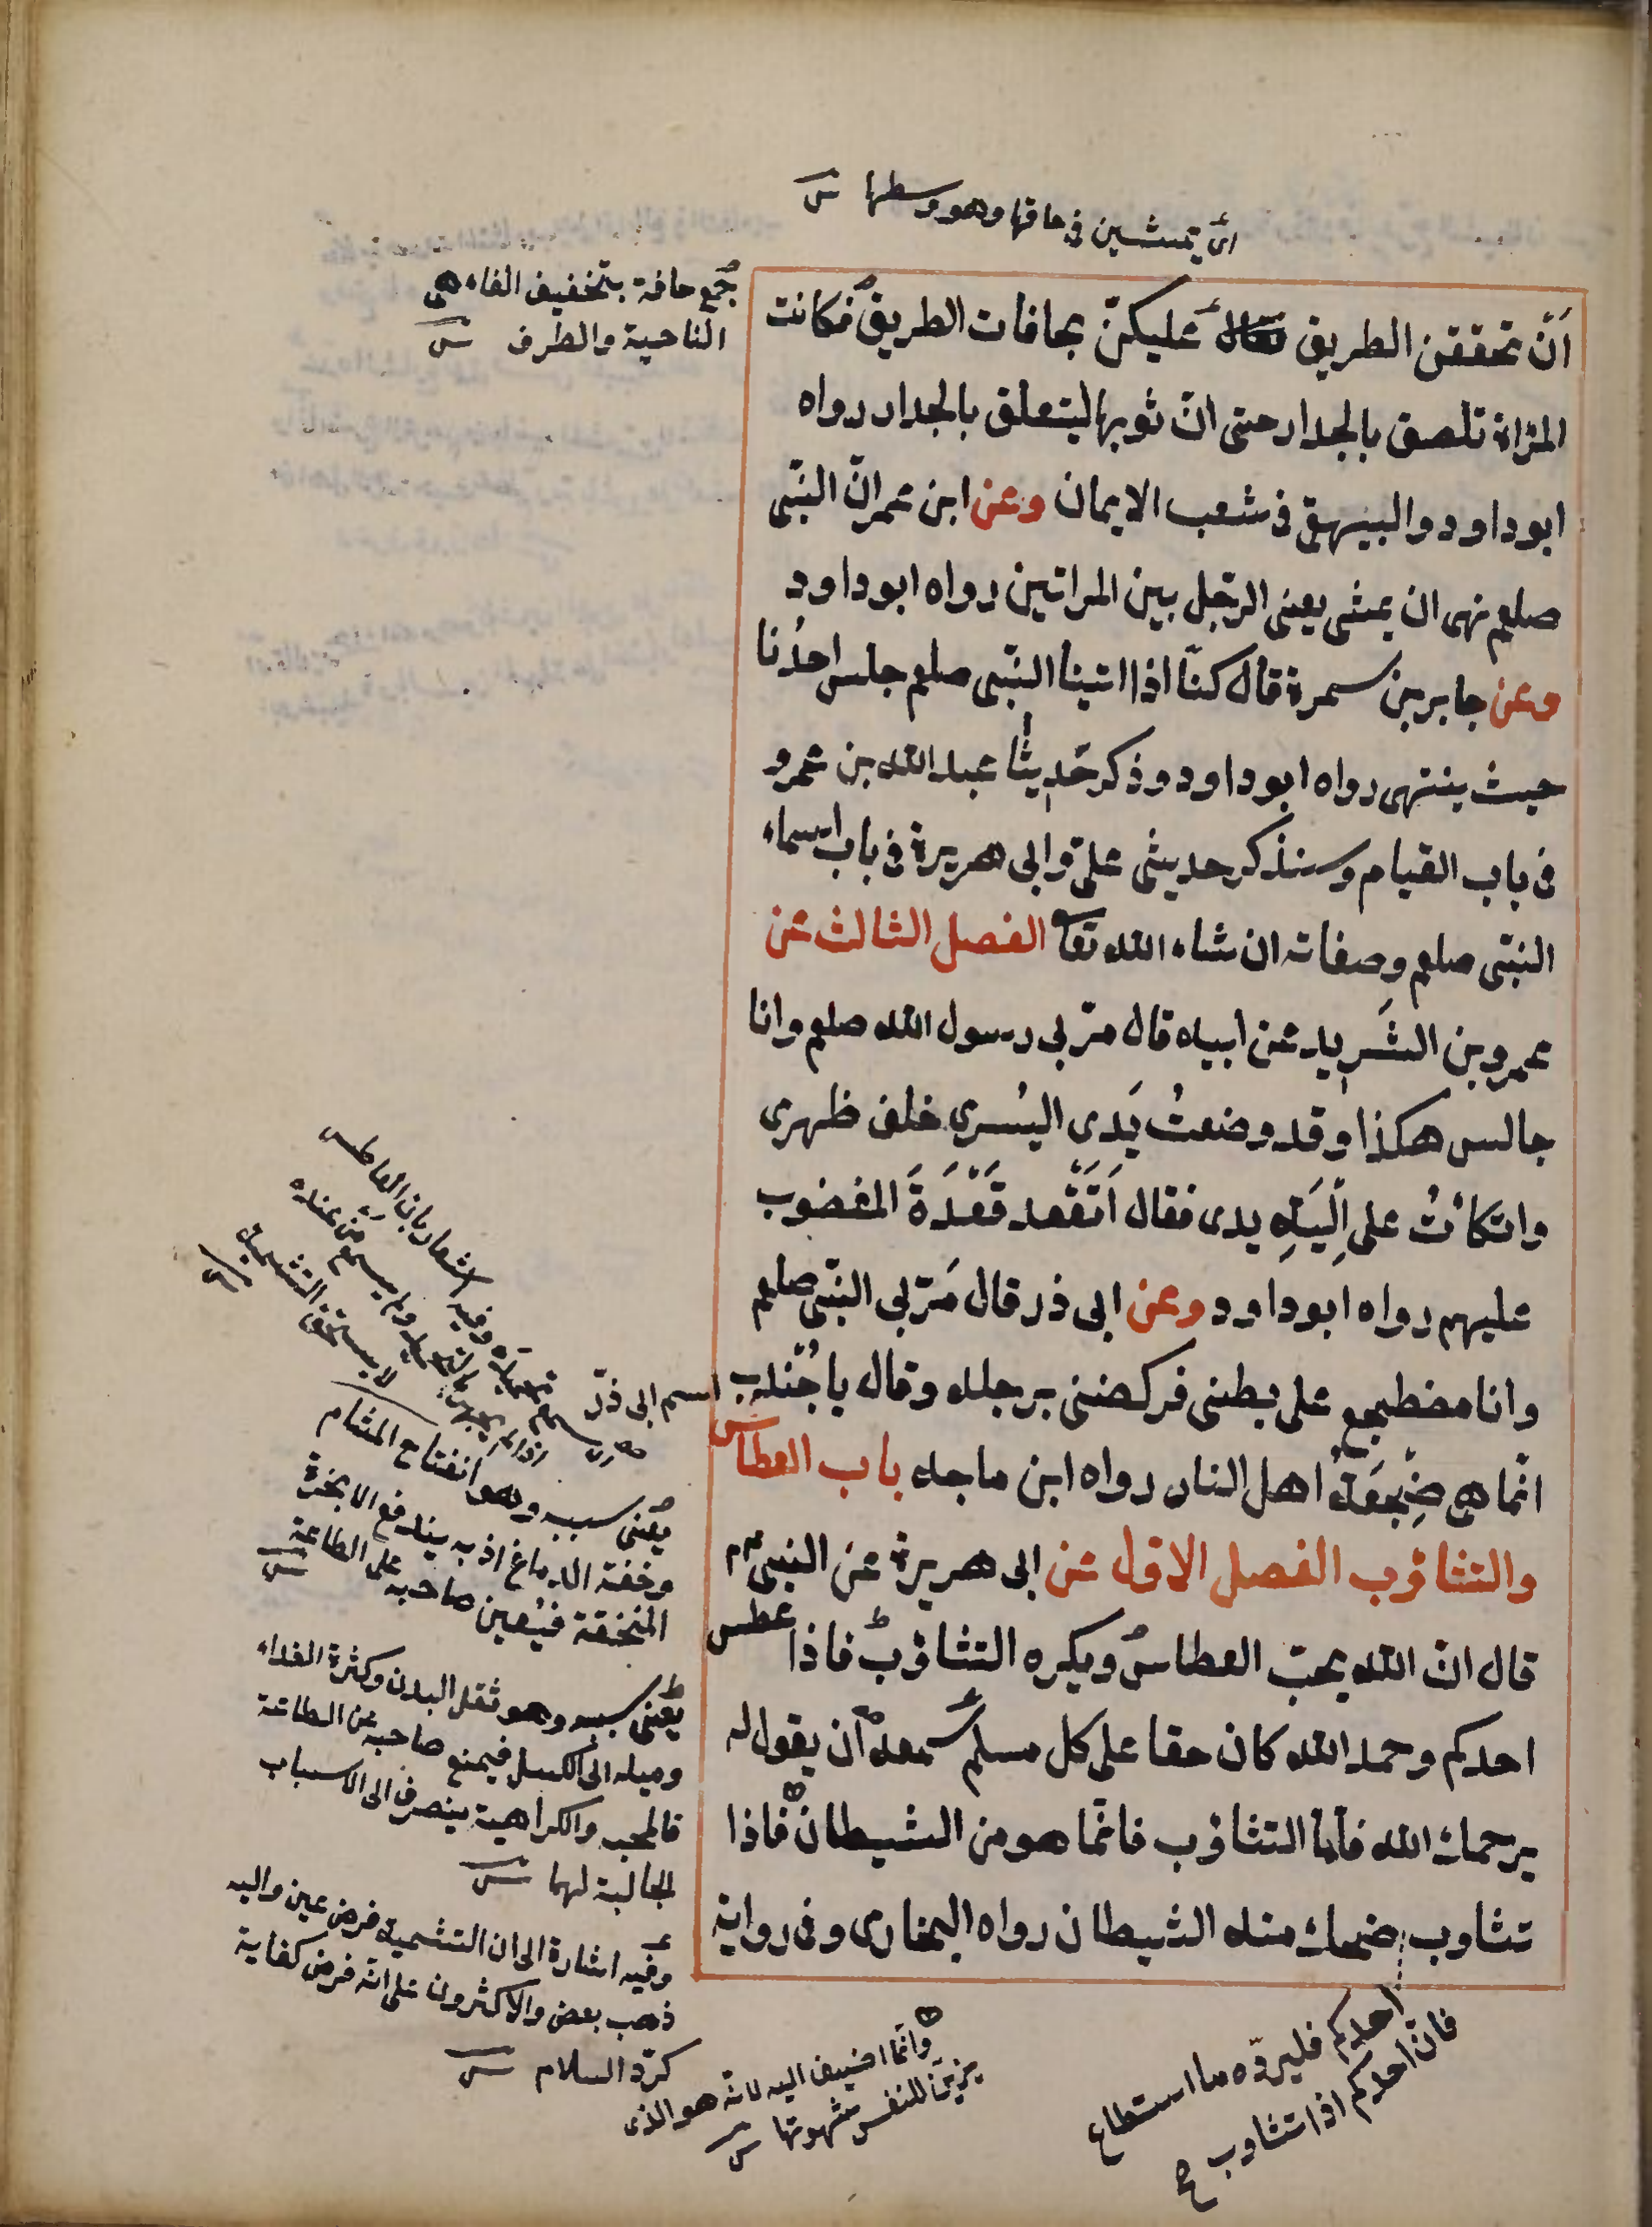 اى يمشين فى حاقها وهو وسطها
جمع حافة بتخفيف الفاء هى
الناحية والطرف
اَنْ تحققن الطريق عليكنّ بحافات الطريق فكانت
المرْاة تلصق بالجدار حتى انّ ثوبها ليتعلق بالجدار رواه
ابو داود والبيهقى فى شعب الايمان وعن ابن عمر انّ النبّى
صلعم نهى ان يمشى يعنى الرّجل بين المراتين رواه ابو داود
وعن جابر بن سمرة قال كنّا اذا اتينا النبّى صلعم جلس احدُنا
حيث ينتهى رواه ابو داود وذكر حَديثا عبد الله بن عمرو
فى باب القيام وسنذكر حديثى علىّ وابى هريرة فى باب اسماء
النبّى صلعم وصفاته ان شاء الله تعا الفصل الثالث عن
عمرو بن الشَرِيد عن ابيه قال مرّ بى رسول الله صلعم وانا
جالس هكذا وقد وضعتُ يَدى اليُسرى خلف ظهرى
واتكأتُ على اَليَةِ يدى فقال اَتَقْعد قَعْدَةَ المغضوب
عليهم رواه ابو داود وعن ابى ذر قال مَرّ بى النبّى صلعم
وانا مضطجع على بطنى فركضنى برجله وقال يا جُندب
انّما هى ضِجْعَةُ اهل النار رواه ابن ماجه باب العطاس
والتثاؤب الفصل الاوّل عن ابى هريرة عن النبى م م
قال انّ الله يحبّ العطاس ويكره التثاؤب فاذا عطس
احدكم وحمد الله كان حقا على كل مسلم سمعه ان يقول له
يرحمك الله فأما التثاؤب فانّما هو من الشيطان فاذا
تثاوب ضحك منه الشيطان رواه البخارى وفى رواية
اسم ابى ذرّ
تحميده وفيه اشعار بان العاطس
اذا لم يجهر بالتحميد ولم يسمع من عنده
لا يستحق التشميت
يعنى سببه وهو انفتاح المشام
وخفة الدماغ اذ به يندفع الابخرة
المنخنقة فيُعين صاحبه على الطاعة
يعنى سببه وهو ثقل البدن وكثرة الغداء
وميله الى الكسل فيمنع صاحبه عن الطاعة
فالمحب والكراهية ينصرف الى الاسباب
الجالبة لهما
وفيه اشارة الى ان التشميت فرض عين واليه
ذهب بعض والاكثرون على انّه فرض كفاية
كردّ السلام
وانّما اضيف اليه لانّه هو الذى
يزيّن للنفس شهوتها
احدكم فليردّه ما استطاع
فانّ احدكم اذا تثاوب